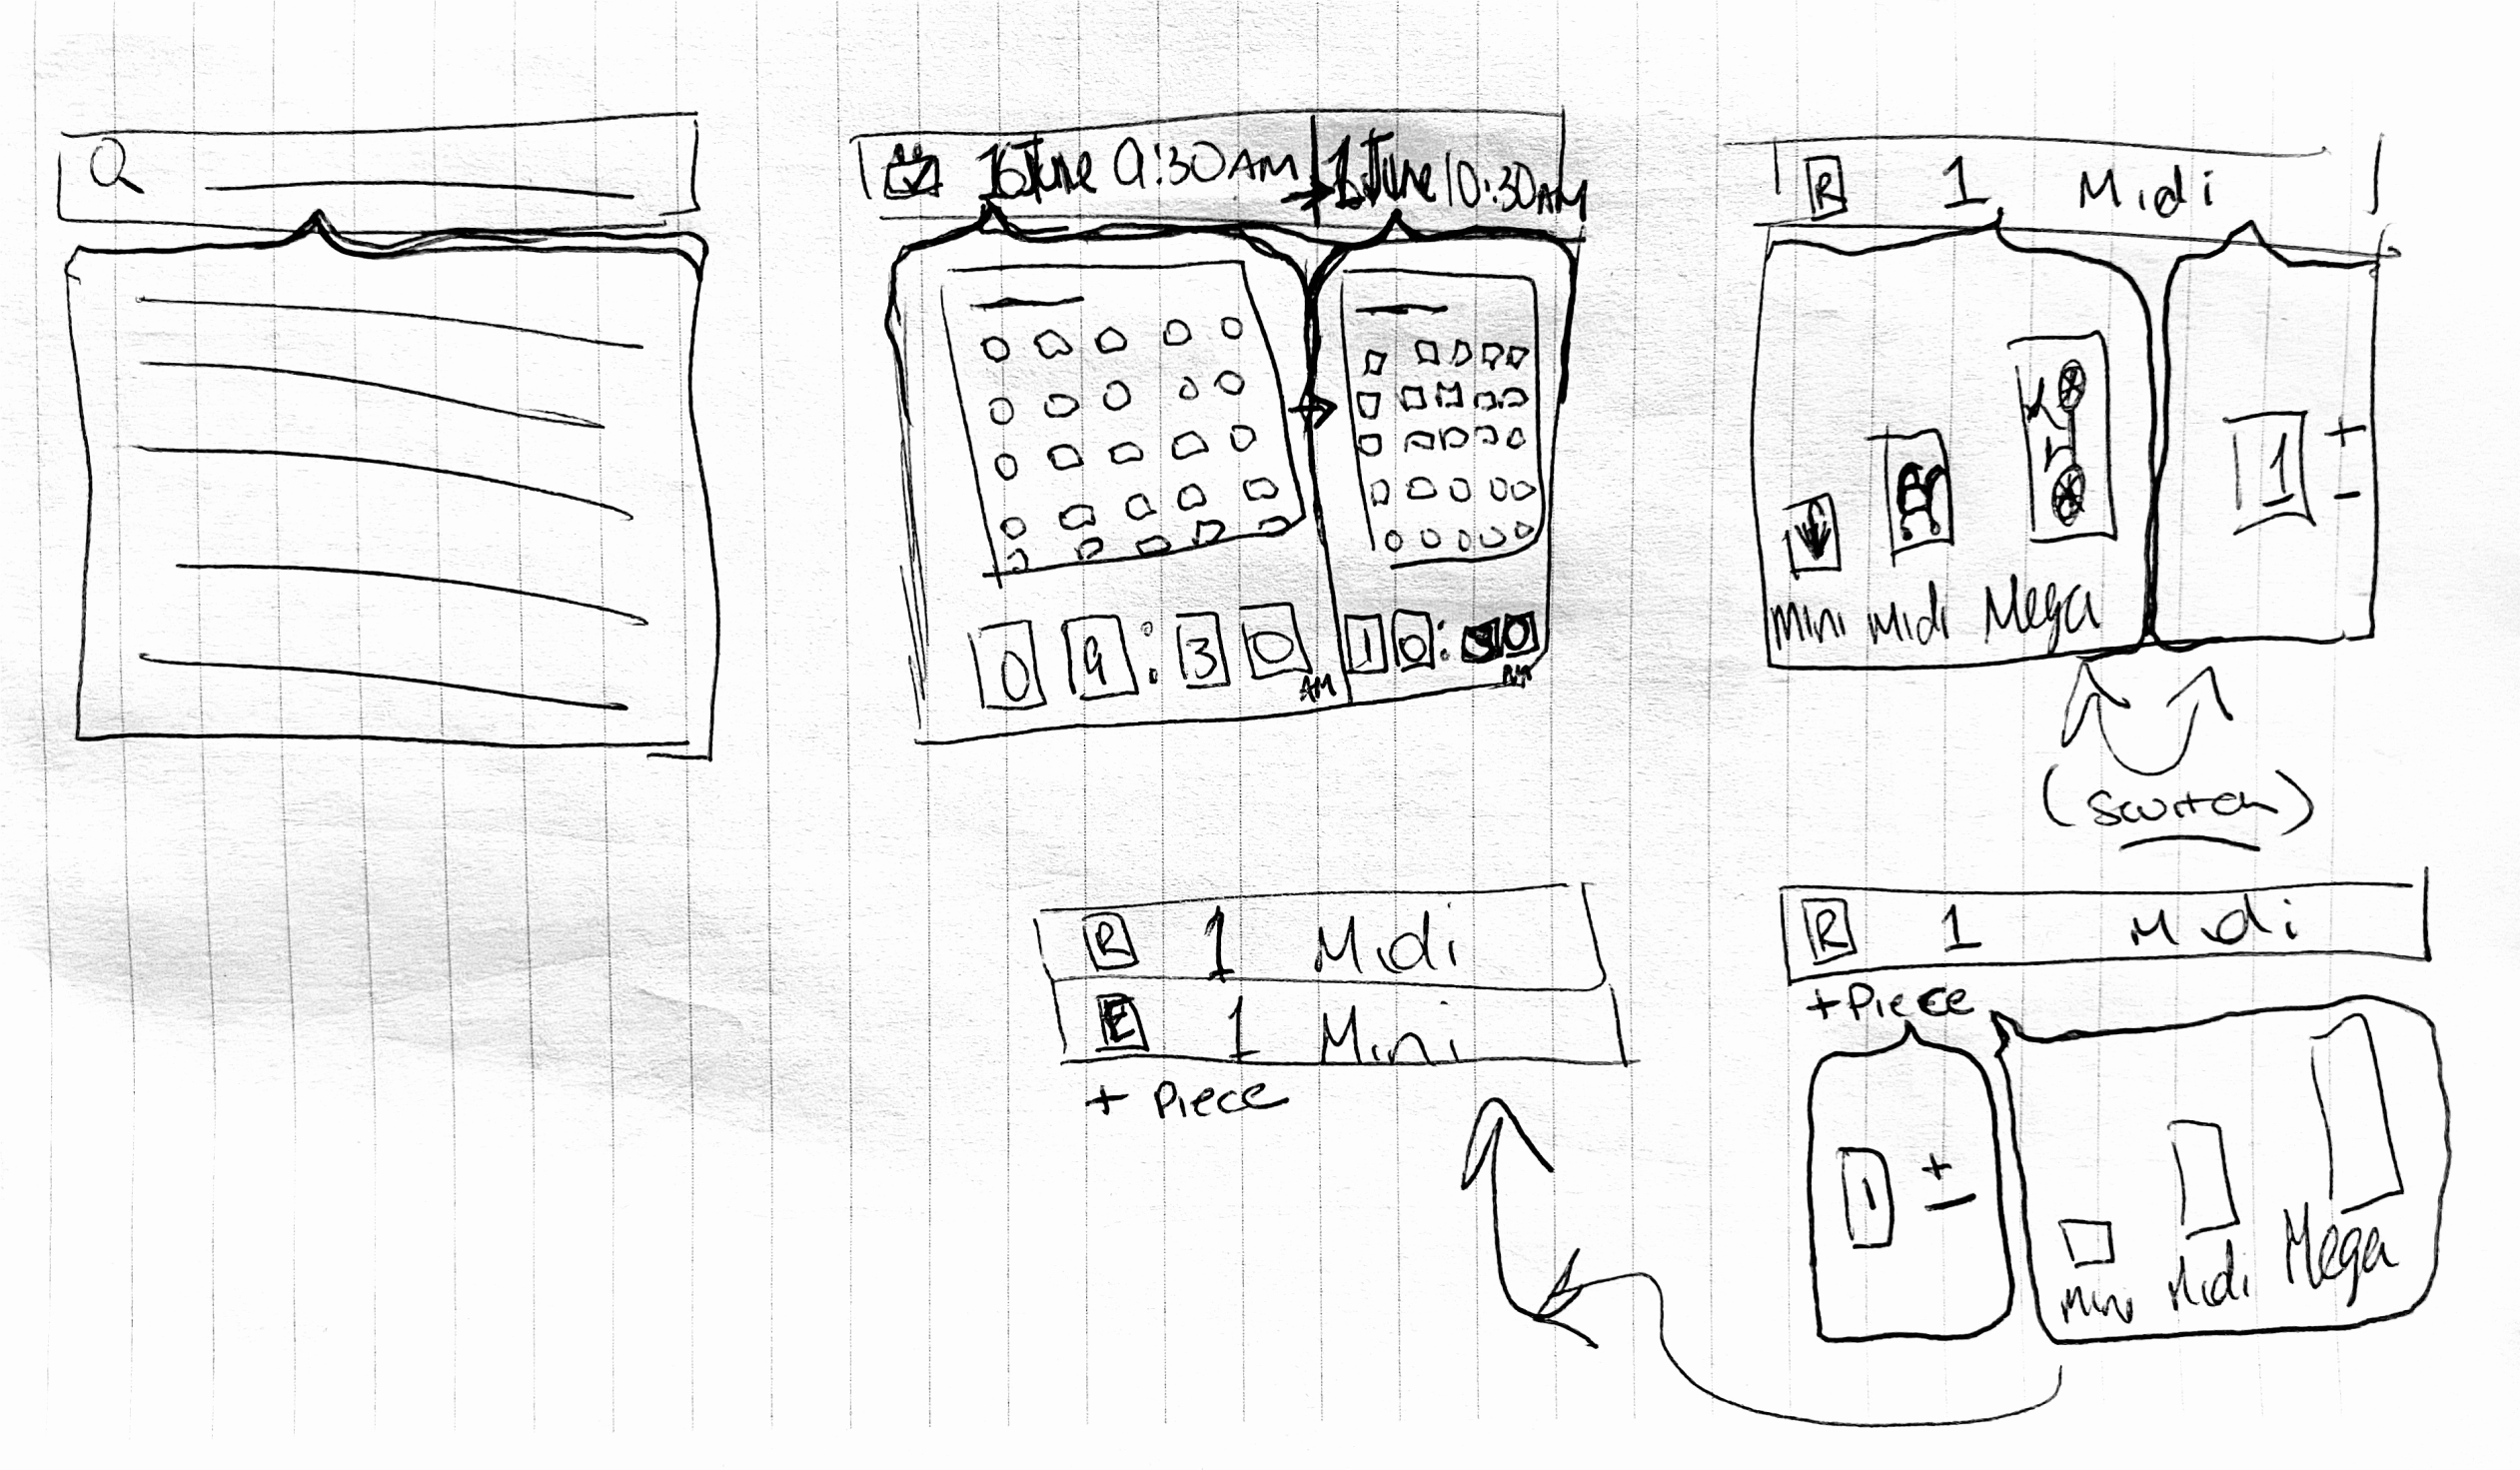 16 June 9:30 AM → 16 June 10:30 AM
09:30 AM
10:30 AM
R 1 Midi
Mini Midi Mega
1 + -
(switch)
R 1 Midi
E 1 Mini
+ Piece
R 1 Midi
+ Piece
1 + -
Mini Midi Mega